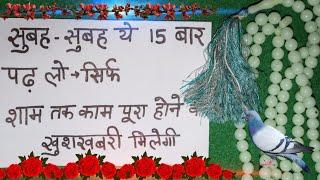 सुबह-सुबह ये 15 बार
पढ़ लो → सिर्फ
शाम तक काम पूरा होने
खुशखबरी मिलेगी